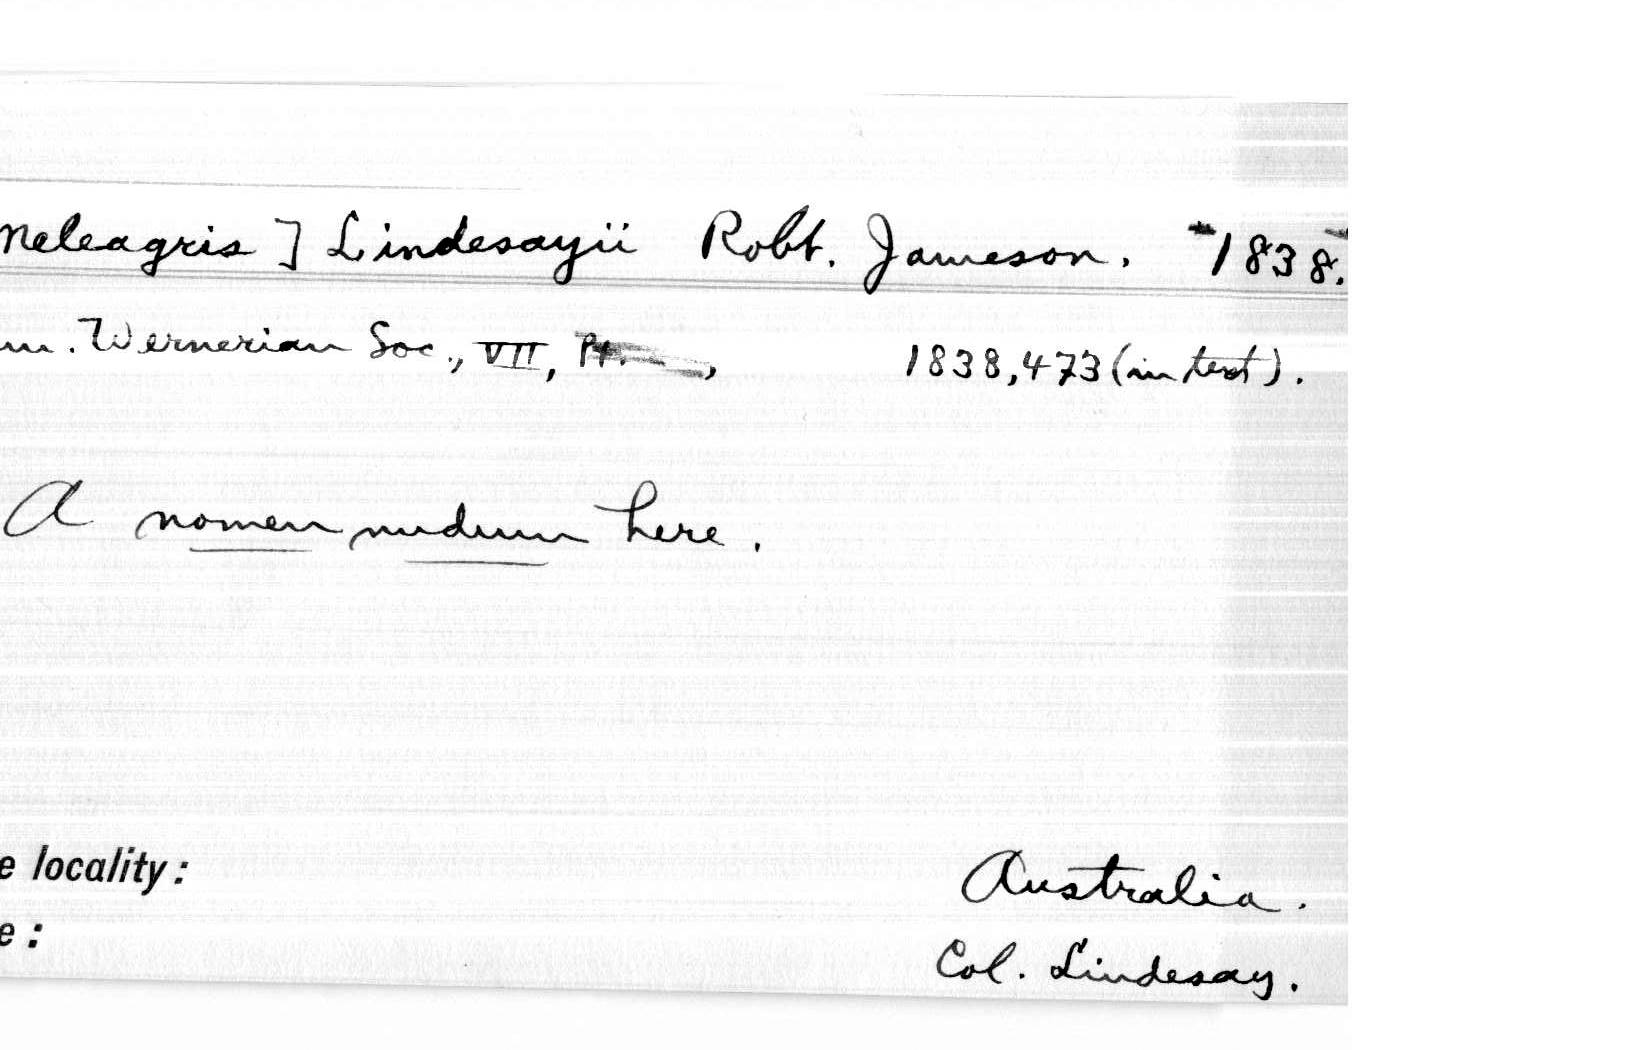 Meleagris ] Lindesayii Robt. Jameson. 1838.
m. Wernerian Soc., VII, Pt. , 1838, 473 (in text).
A nomen nudum here.
e locality: Australia.
e: Col. Lindesay.